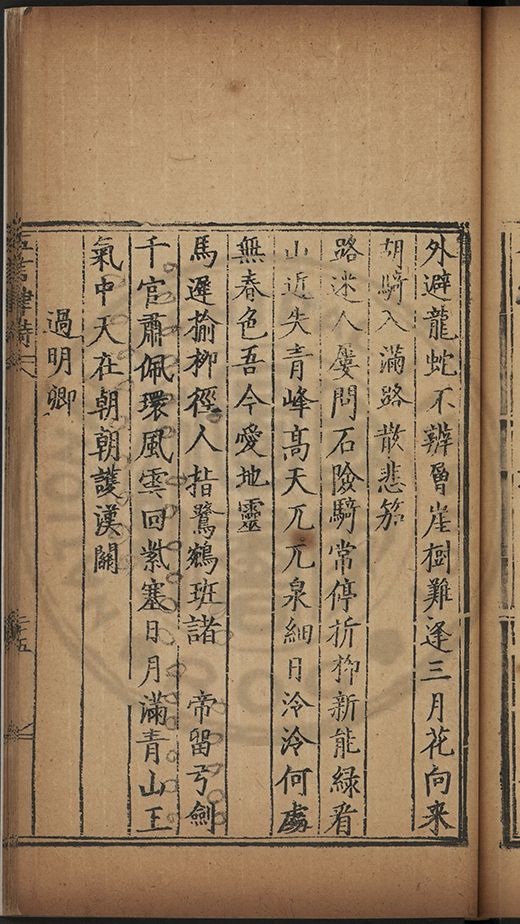 外避龍蛇不辨曾崖樹難逢三月花向来
胡騎入滿路散悲笳
路迷人屢問石險騎常停折柳新能綠看
山近失青峰高天兀兀泉細日泠泠何處
無春色吾今愛地靈
馬遲榆柳徑人指鷺鵷班諸　帝留弓劍
千官肅佩環風雲回紫塞日月滿青山王
氣中天在朝朝護漢關
過明卿
五言律詩